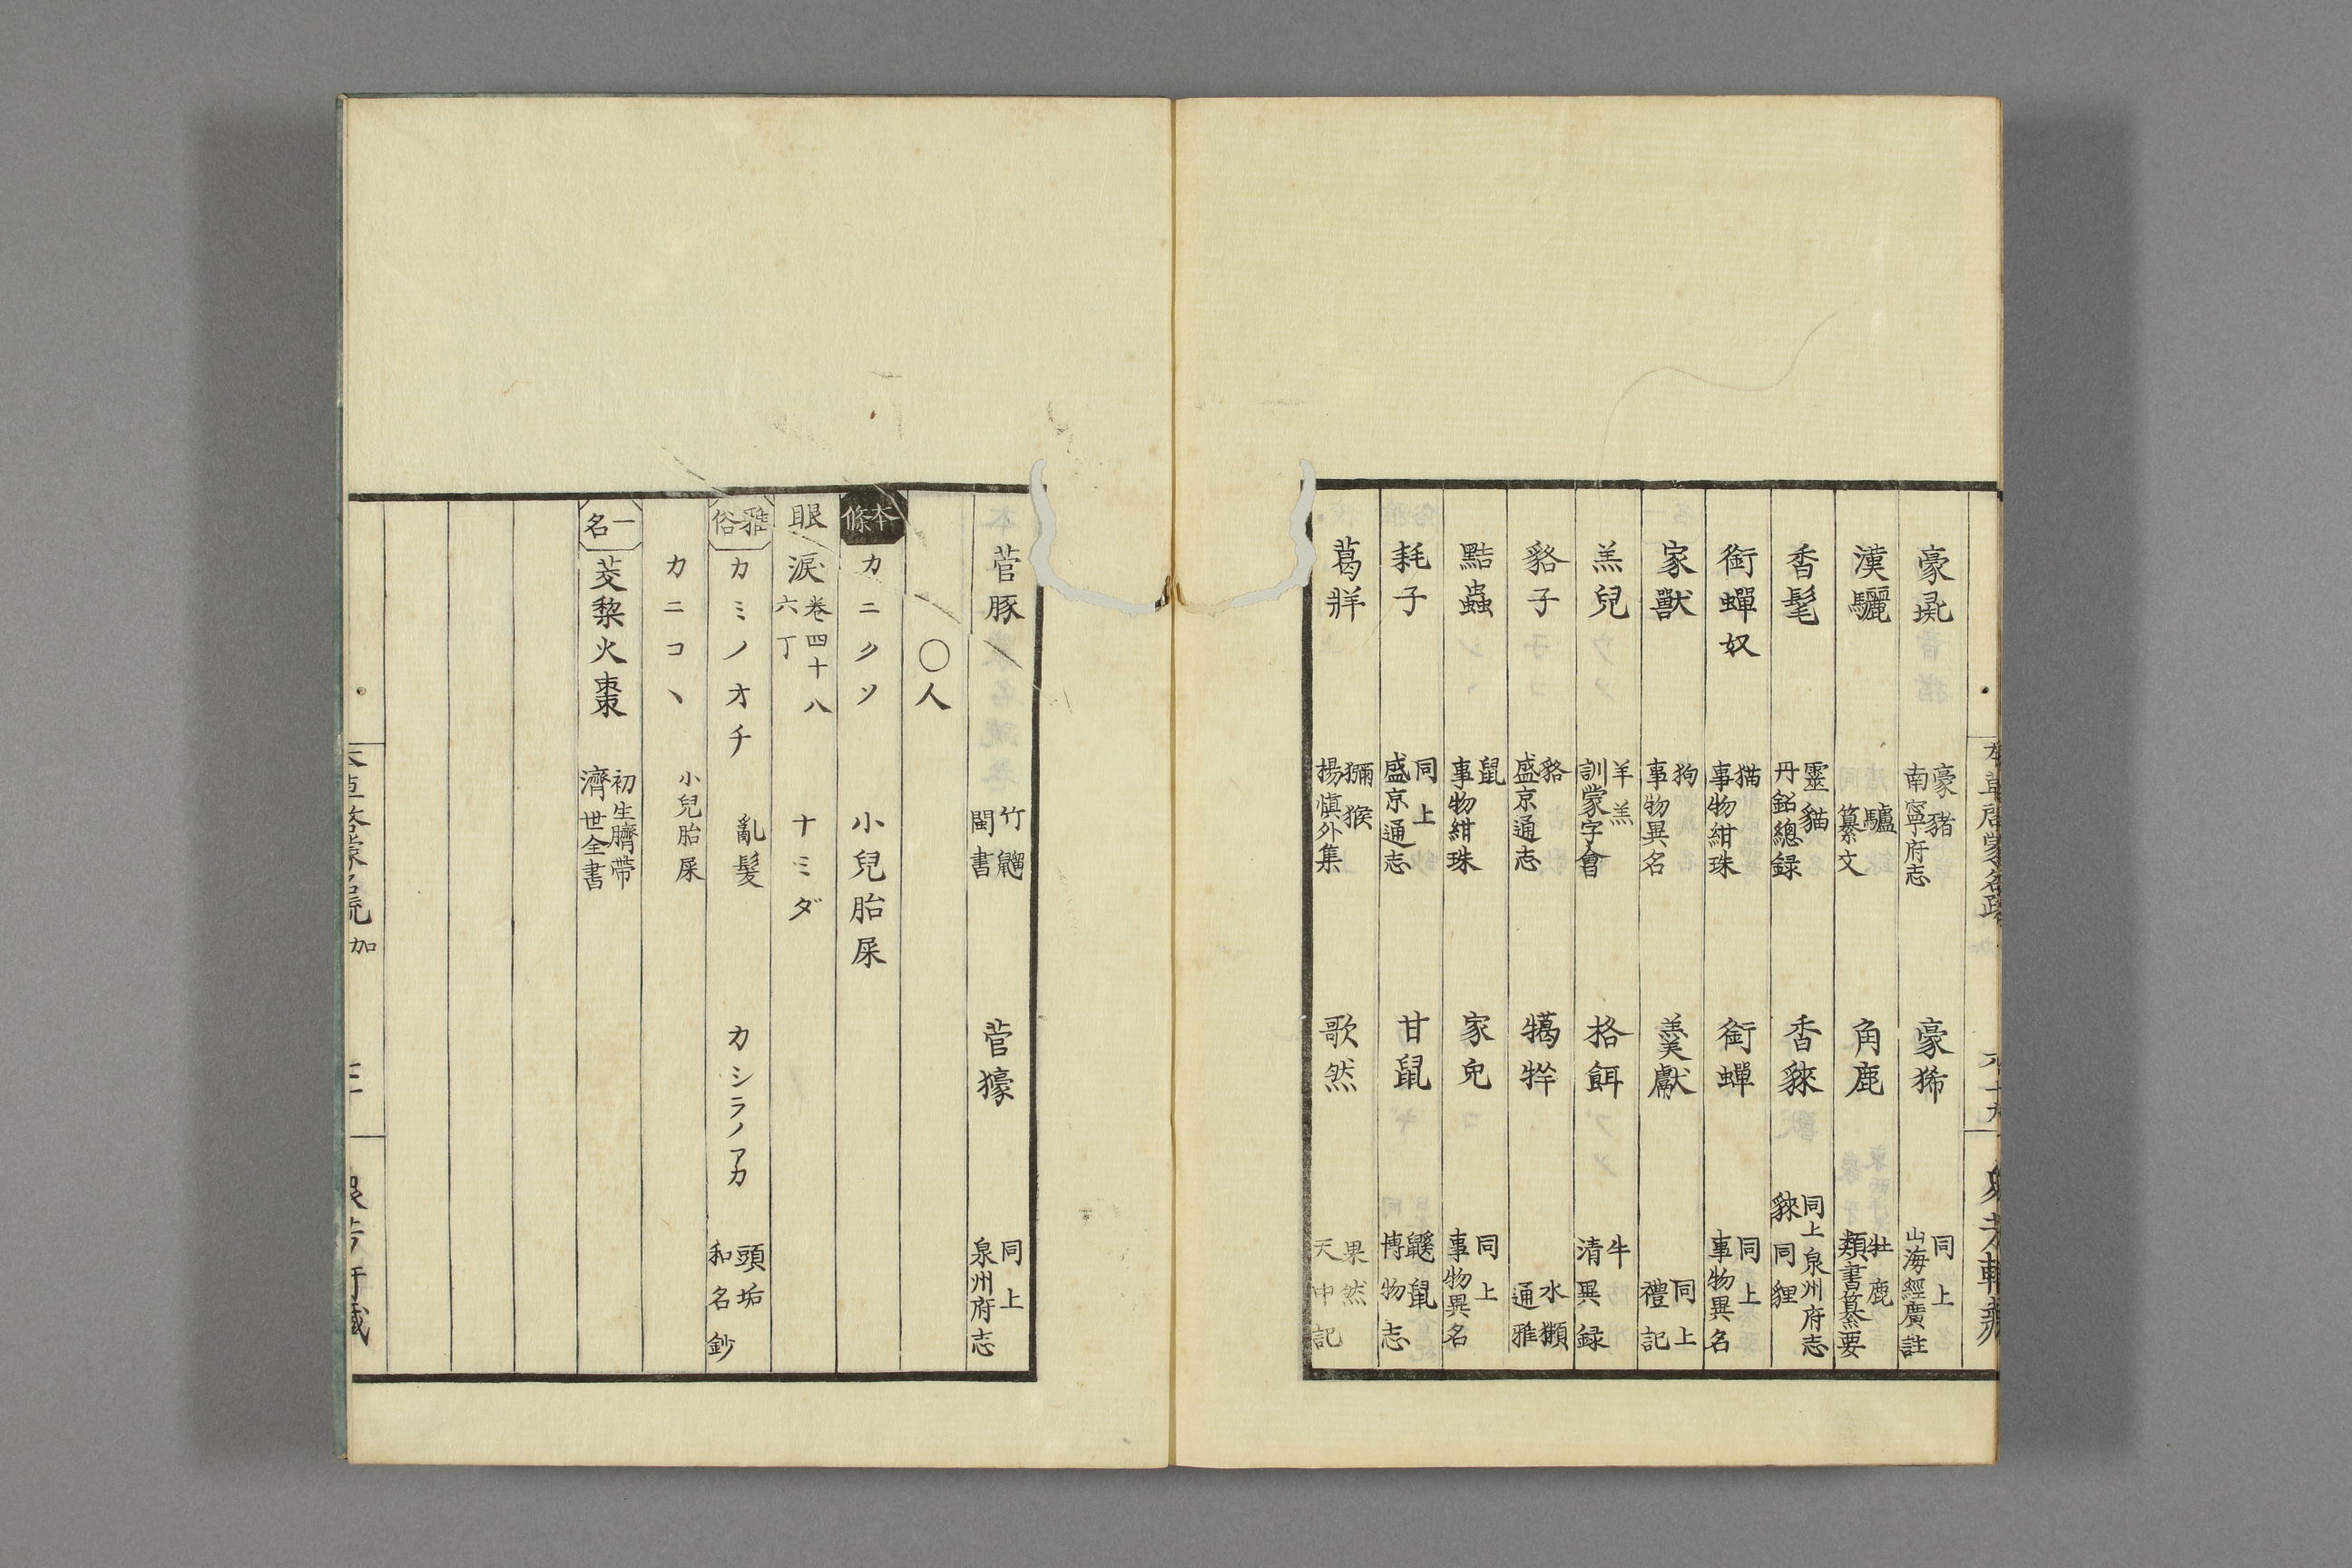 豪㹸 豪豬 南寧府志 豪狶 同上 山海經廣註
漢驪 驢 纂文 角鹿 牡鹿 類書纂要
香髦 靈貓 丹鉛總録 香貅 同上 泉州府志 貅同貍
銜蟬奴 猫 事物紺珠 銜蟬 同上 事物異名
家獸 狗 事物異名 羹獻 同上 禮記
羔兒 羊羔 訓蒙字會 格餌 牛 清異録
貉子 貉 盛京通志 獦㹊 水獺 通雅
黠蟲 鼠 事物紺珠 家兎 同上 事物異名
耗子 同上 盛京通志 甘鼠 鼷鼠 博物志
葛牂 獼猴 楊慎外集 歌然 果然 天中記
菅豚 竹鼺 閩書 菅獴 同上 泉州府志
〇人
本條 カニクソ 小兒胎屎
眼涙 巻四十八 六丁 ナミダ
雅俗 カミノオチ 亂髮 カシラノアカ 頭垢 和名鈔
カニコヽ 小兒胎屎
一名 茭藜火棗 初生臍帶 濟世全書